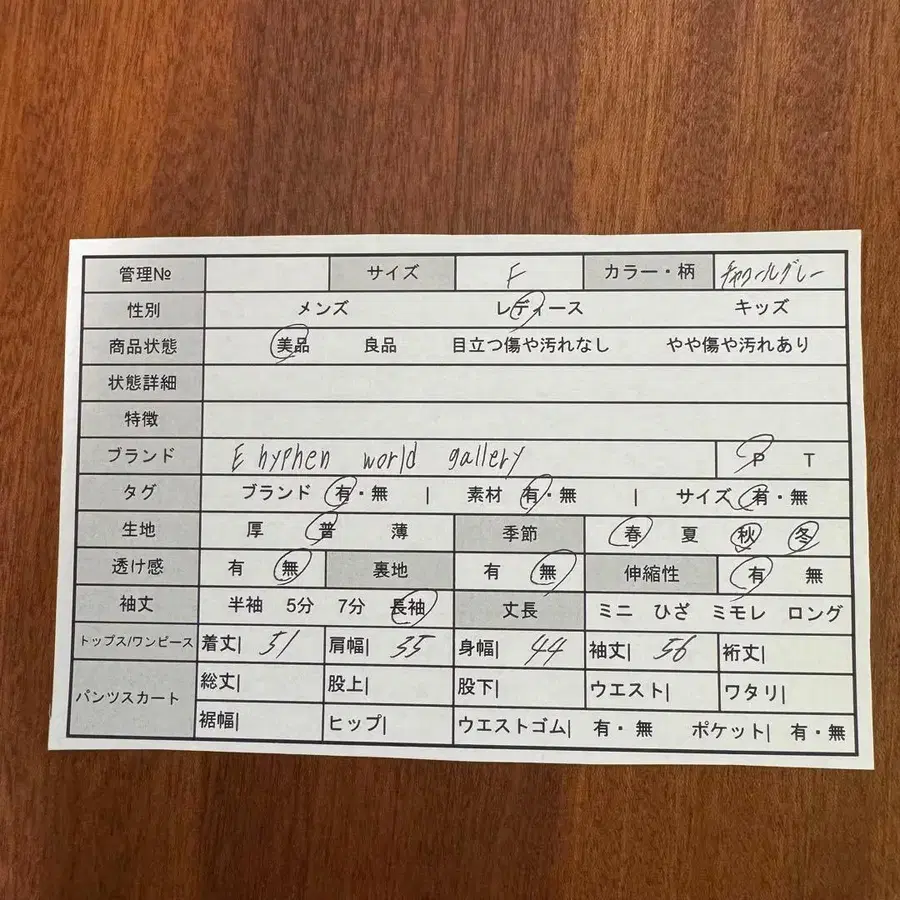 管理№ サイズ F カラー・柄 チャコールグレー
性別 メンズ レディース キッズ
商品状態 美品 良品 目立つ傷や汚れなし やや傷や汚れあり
状態詳細
特徴
ブランド E hyphen world gallery P T
タグ ブランド 有・無 | 素材 有・無 | サイズ 有・無
生地 厚 普 薄 季節 春 夏 秋 冬
透け感 有 無 裏地 有 無 伸縮性 有 無
袖丈 半袖 5分 7分 長袖 丈長 ミニ ひざ ミモレ ロング
トップス/ワンピース 着丈| 51 肩幅| 35 身幅| 44 袖丈| 56 裄丈|
パンツスカート 総丈| 股上| 股下| ウエスト| ワタリ|
裾幅| ヒップ| ウエストゴム| 有・無 ポケット| 有・無